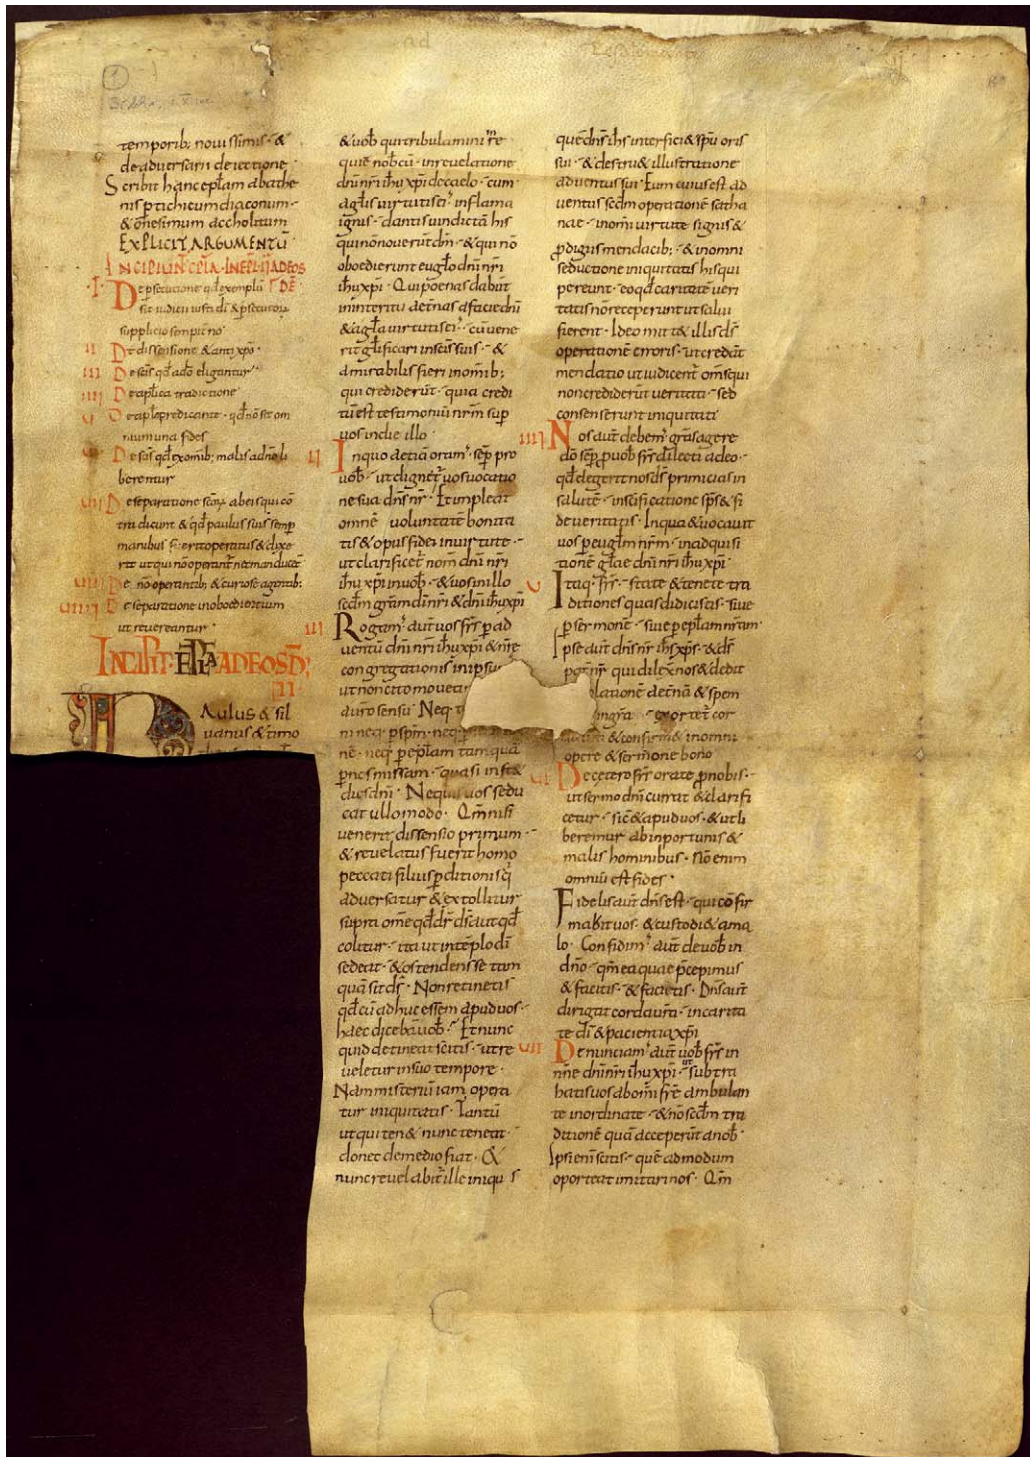 temporib; novissimis · &
de adversarii deiectione ·
Scribit hanc eplam ab athe
nis p tichicum diaconum ·
& onesimum accholitum
EXPLICIT ARGUMENTŪ
INCIPIUNT CPLA · IN EPLA II AD EOS
DĒ
I · De psecutione qd exemplū
sit iudicii iusti dī & psecutorū
supplicio sempitno
II De dissensione & antixpo ·
III De scīs qd a dō eligantur
IIII De aplica traditione
V De aplo predicante · qd nō sit om
nium una fides
VI De scīs qd ex omib; malis a dno li
berentur
VII De separatione scōrū ab eis qui cō
tradicunt & qd paulus suis semp
manibus sit operatus & dixe
rit ut qui nō operant nec manducet
VIII De nō operantib; & curiose agentib;
VIIII De separatione inoboedientium
ut revereantur
INCIPIT · EPLA AD EOSD;
II
PAULUS & sil
vanus & timo
& vob qui tribulamini re
quiē nobcū · in revelatione
dnī nrī ihu xpi de caelo · cum
aglis virtutis ei · in flama
ignis · dantis vindictā his
qui nō noverut dm · & qui nō
oboedierunt euglo dnī nrī
ihu xpi · Qui poenas dabūt
in interitu aeternas a facie dnī
& a gla virtutis ei · cū vene
rit glificari in scis suis · &
amirabilis fieri in omib;
qui crediderūt · quia credi
tū est testimoniū nrm sup
vos in die illo ·
II In quo aetiā oram semp pro
vob · ut dignet vos vocatio
ne sua dns nr · Et impleat
omnē voluntatē bonita
tis & opus fidei in virtute ·
ut clarificet nom dnī nrī
ihu xpi in vob · & vos in illo
scdm gram dī nrī & dnī ihu xpi
III Rogam aut vos frs p ad
ventū dnī nrī ihu xpi & nre
congregationis in ipsu
ut non cito movea
a vro sensu Neq t
ni neq p spm · neq p
nē · neq p eplam tam quā
p nos missam · quasi inst&
dies dnī · Ne quis vos sedu
cat ullo modo · Qm nisi
venerit dissensio primum ·
& revelatus fuerit homo
peccati filius pditionis q
adversatur & extollitur
supra ome qd dr ds aut qd
colitur · ita ut in templo dī
sedeat · & ostendens se tam
quā sit ds · Non retinetis
qd cū adhuc essem apud vos ·
haec dicebā vob · Et nunc
quid detineat scitis · ut re
veletur in suo tempore ·
Nam misteriū iam opera
tur iniquitatis · Tantū
ut qui ten& nunc teneat ·
donec de medio fiat · &
nunc revelabit ille iniqus
quē dns ihs interfici& spu oris
sui · & destru& illustratione
adventus sui · Eum cuius est ad
ventus scdm operationē satha
nae · in omi virtute signis &
pdigiis mendacib; · & in omni
seductione iniquitatis his qui
pereunt · eo qd caritatē veri
tatis nō receperunt ut salvi
fierent · Ideo mitt& illis ds
operationē erroris · ut credāt
mendatio ut iudicent oms qui
non crediderūt veritati · sed
consenserunt iniquitati
IIII Nos aut debem gras agere
dō semp p vob frs dilecti a deo ·
qd elegerit nos ds primicias in
salutē · in scificatione sps & fi
de veritatis · In qua & vocavit
vos p euglm nrm · in adquisi
tionē glae dnī nrī ihu xpi
V Itaq frs · state & tenete tra
ditiones quas didicistis · sive
p sermonē · sive p eplam nram ·
Ipse aut dns nr ihs xps · & ds
pat nr qui dilex nos & dedit
olationē aetnā & spem
in gra · exortet cor
& confirm& in omni
opere & sermone bono
VI De cetero frs orate p nobis ·
ut sermo dnī currat & clarifi
cetur · sic & apud vos · & ut li
beremur ab inportunis &
malis hominibus · nō enim
omniū est fides ·
Fidelis aut dns est · qui cōfir
mabit vos · & custodi& a ma
lo · Confidim aut de vob in
dno · qm ea quae pcepimus
& facitis · & facietis · Dns aut
dirigat corda vra · in carita
te dī & pacientia xpi
VII Denunciam aut vob frs in
nne dnī nrī ihu xpi · ut subtra
hatis vos ab omi fre ambulan
te inordinate · & nō scdm tra
ditionē quā acceperūt a nob ·
Ipsi eni scitis · quē admodum
oporteat imitari nos · Qm